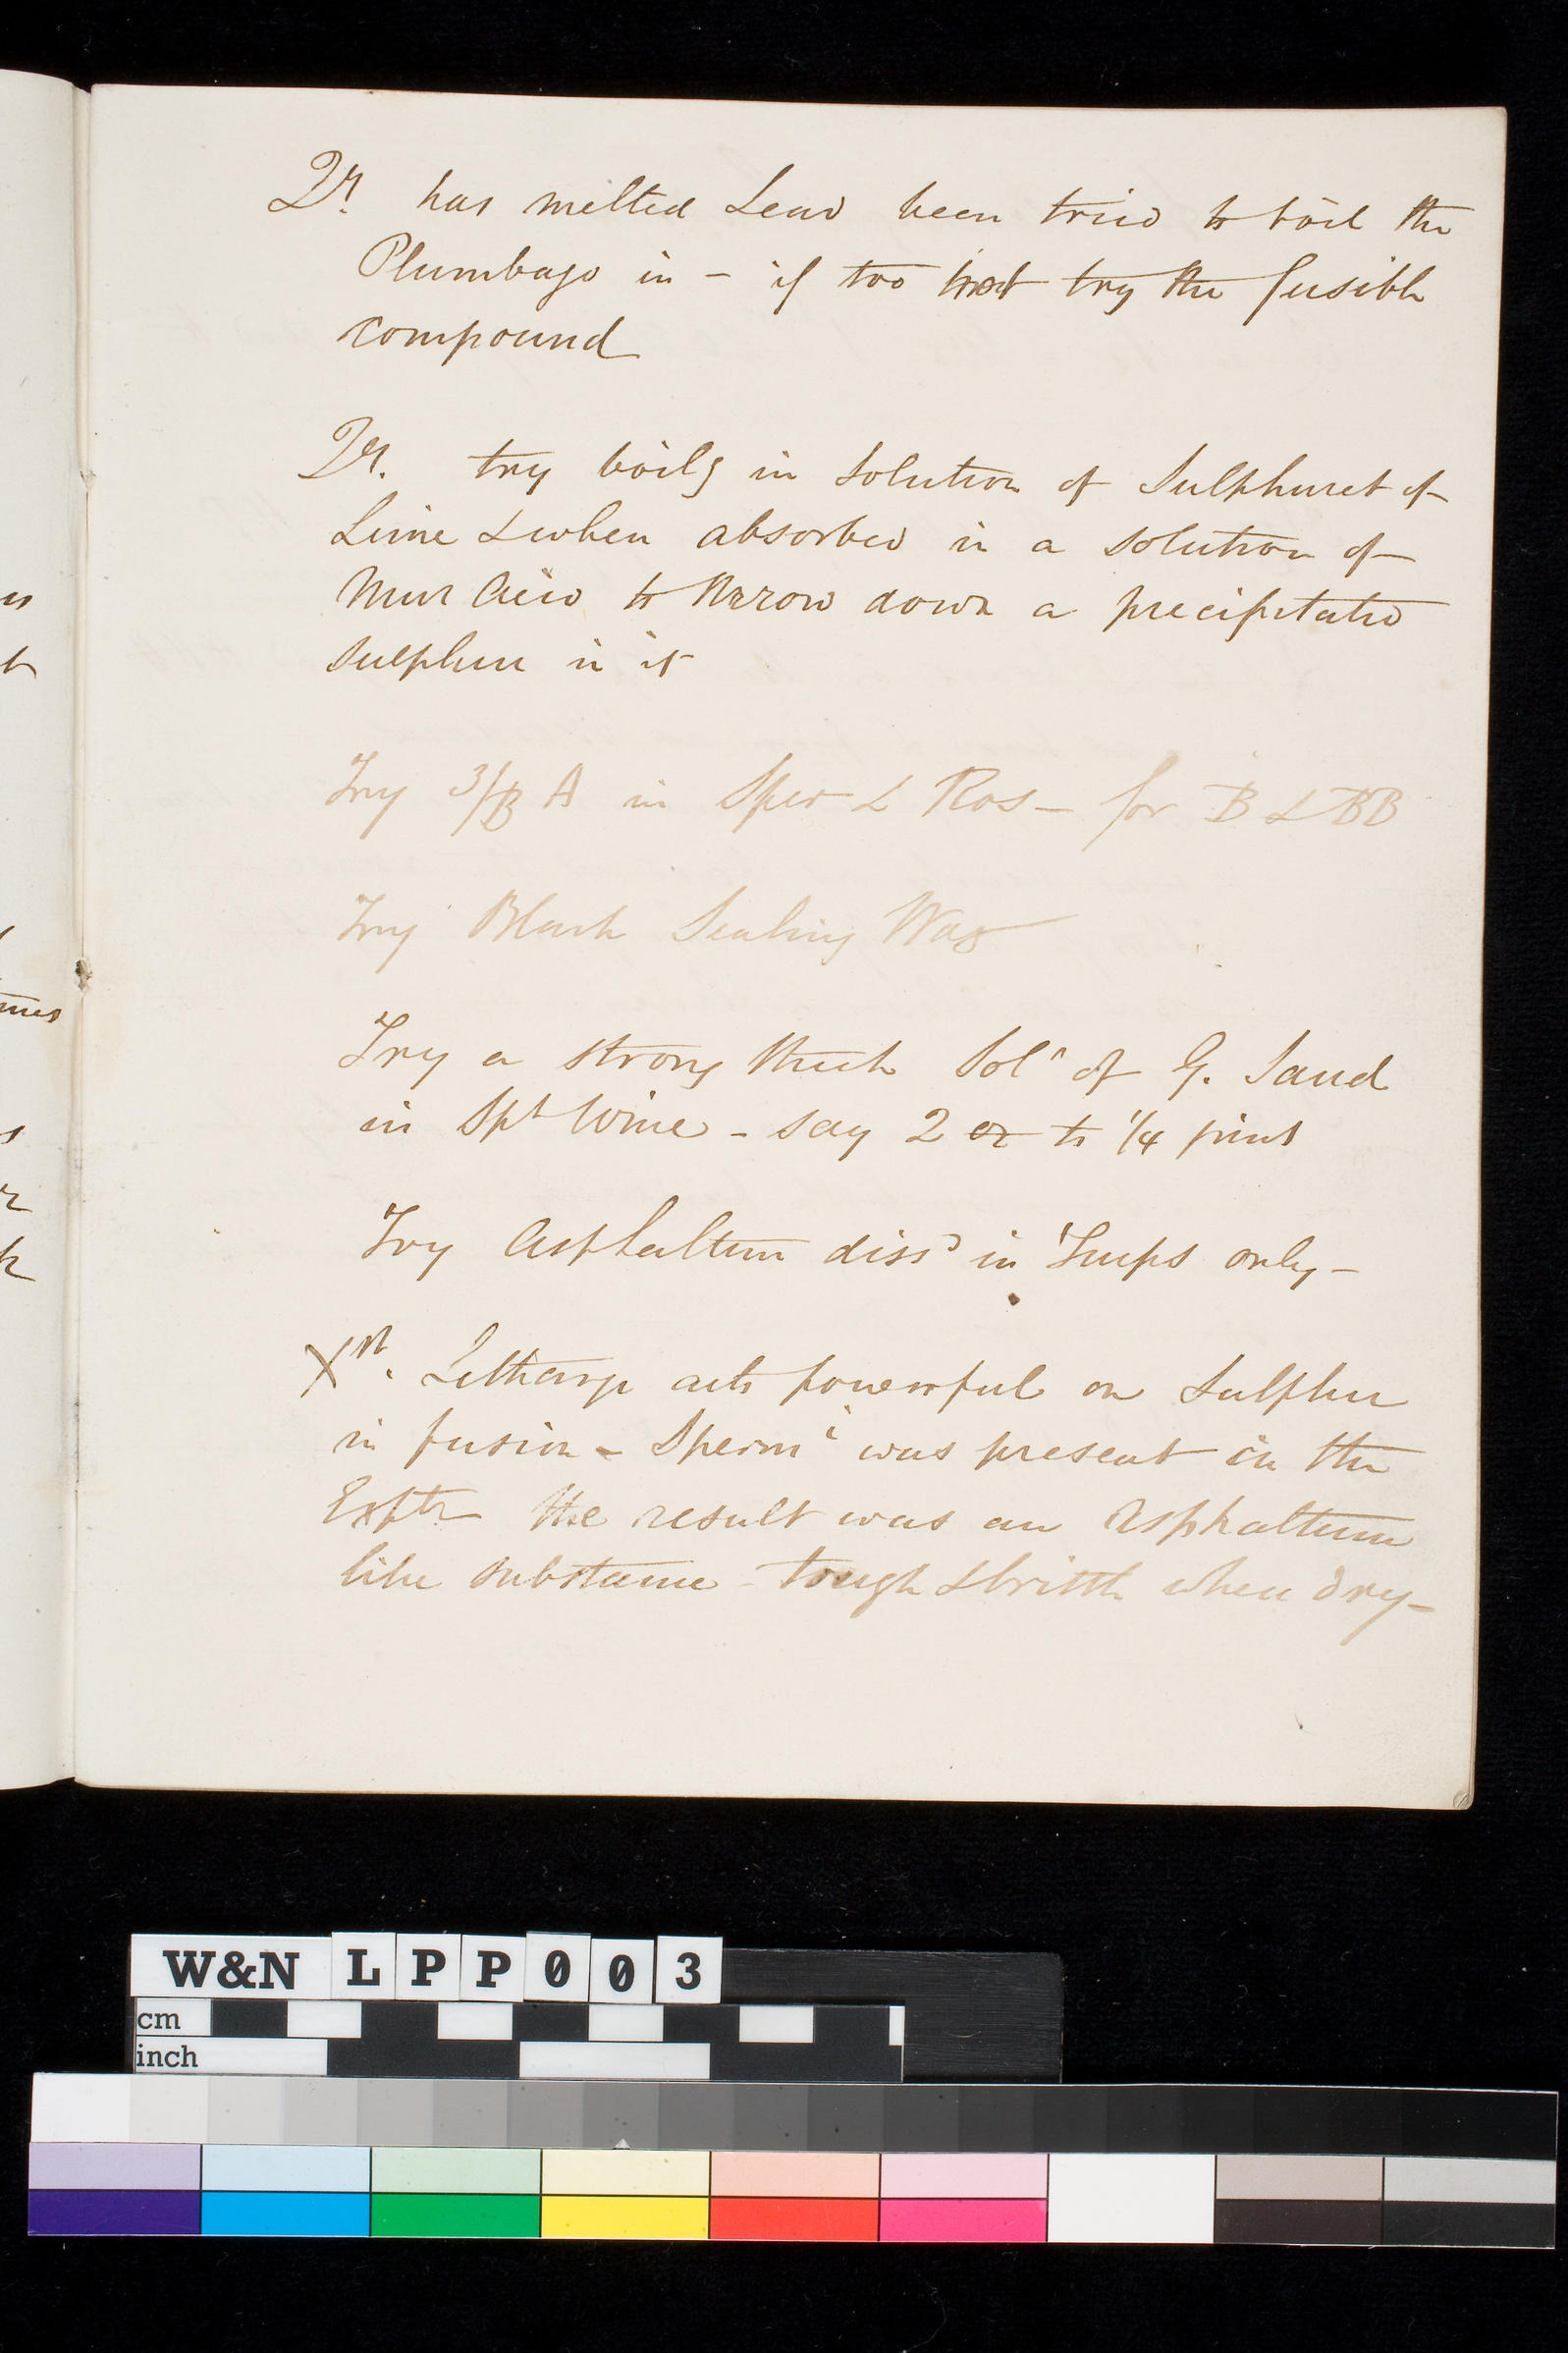 Qr. has melted Lead been tried to boil the
Plumbago in - if too hot try the fusible
compound
Qr. try boilg in solution of Sulphuret of
Lime & when absorbed in a solution of
Mur Acid to throw down a precipitatd
sulphur in it
Try 3/B A in Sper & Ros - for B & BB
Try Black Sealing Wax
Try a strong thick Soln of G. Sand
in Spt Wine - say 2 oz to 1/4 pint
Try Asphaltum dissd in Turps only -
Litharge acts powerful on Sulphur
in fusion - Spermi was present in the
Exptr the result was an Asphaltum
like substance - tough & brittle when dry -
W&N LPP003
cm
inch